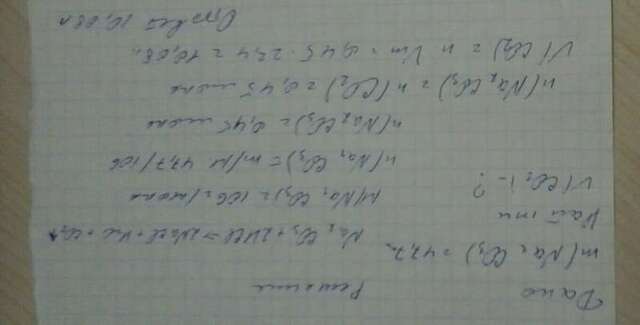 Дано
Решение
m(Na2CO3) = 47,7г
Найти
V(CO2) - ?
Na2CO3 + 2HCl → 2NaCl + H2O + CO2↑
M(Na2CO3) = 106 г/моль
n(Na2CO3) = m/M 47,7/106
n(Na2CO3) = 0,45 моль
n(Na2CO3) = n(CO2) = 0,45 моль
V(CO2) = n Vm = 0,45 · 22,4 = 10,08л
Ответ 10,08л